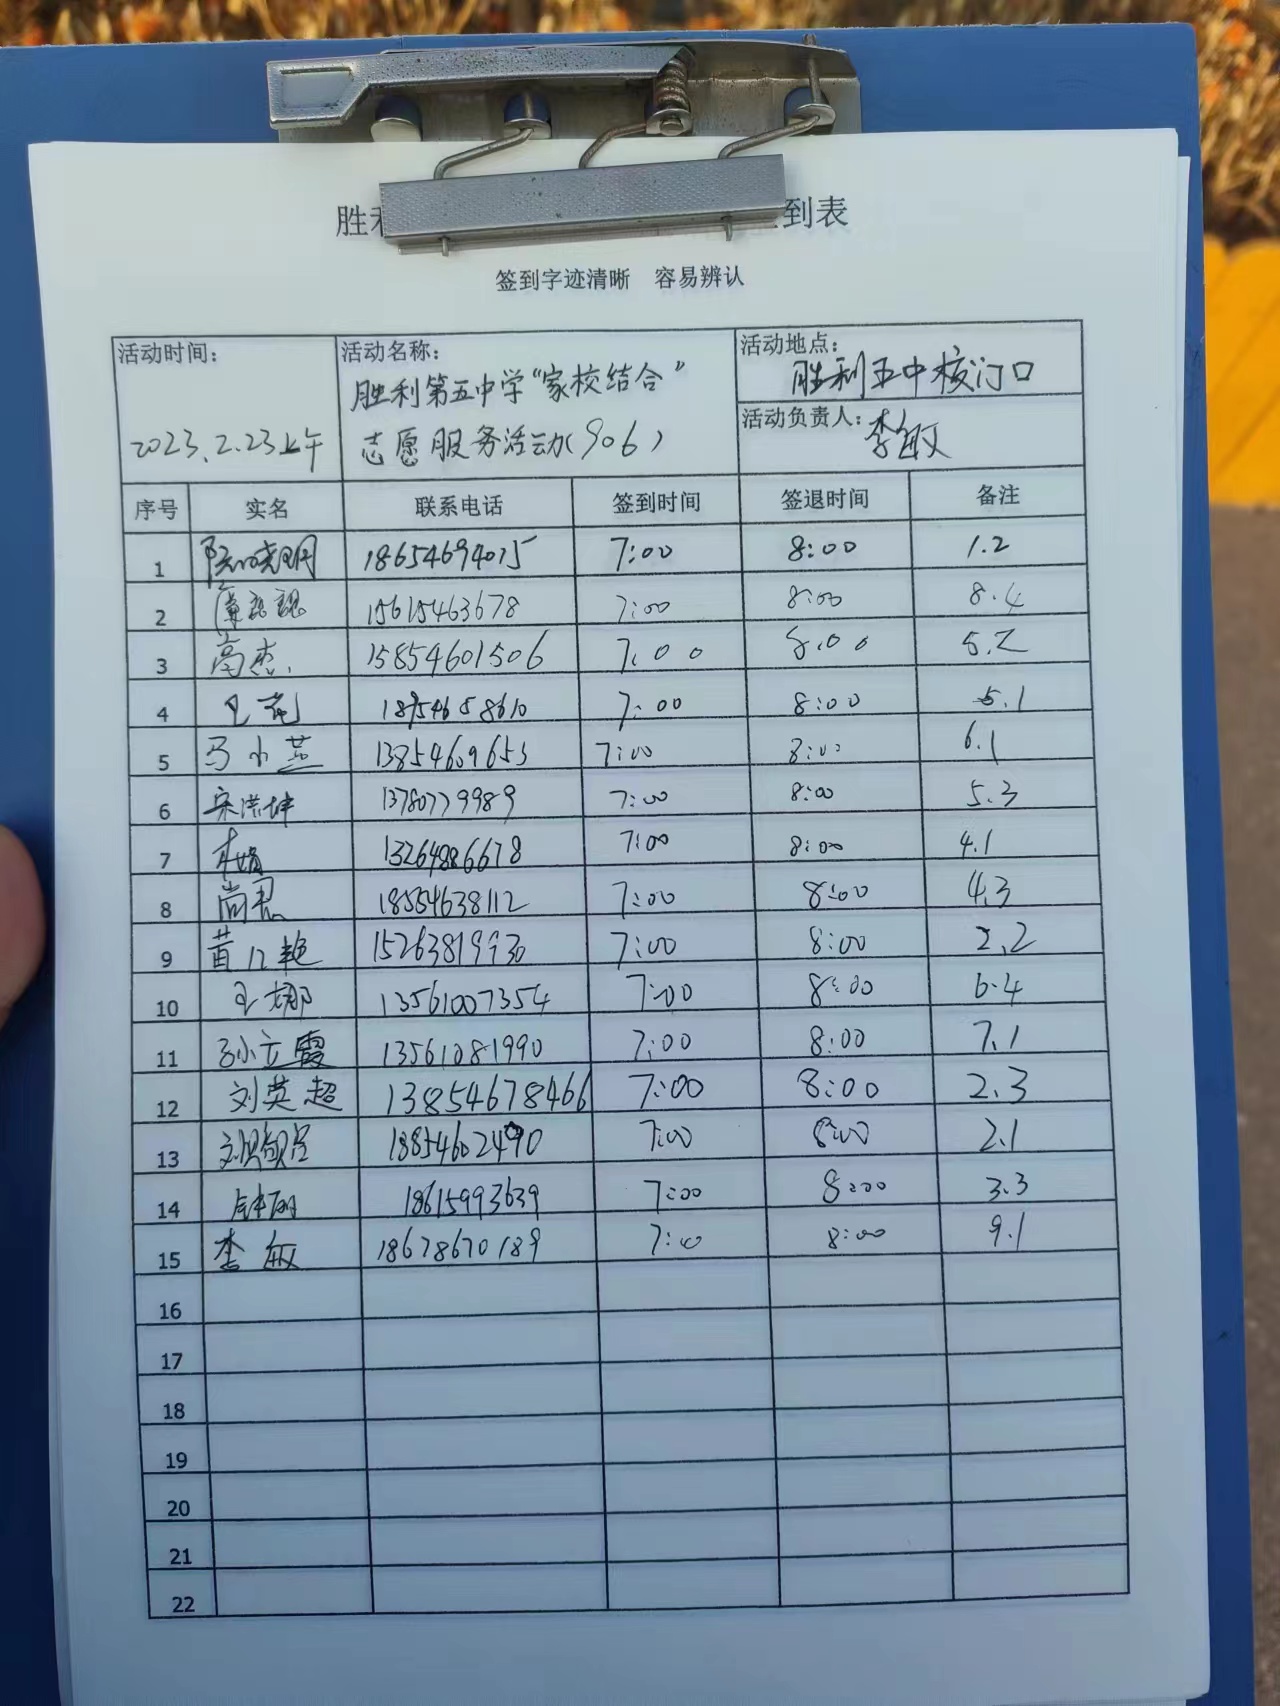 胜 到表
签到字迹清晰 容易辨认
活动时间: 2023.2.23上午
活动名称: 胜利第五中学"家校结合"
志愿服务活动(906)
活动地点: 胜利五中校门口
活动负责人: 李敏
序号 实名 联系电话 签到时间 签退时间 备注
1 18654694015 7:00 8:00 1.2
2 15615463678 7:00 8:00 8.4
3 高杰 15854601506 7:00 8:00 5.2
4 王苑 18954658610 7:00 8:00 5.1
5 马小燕 13854609653 7:00 8:00 6.1
6 宋洪坤 13780779989 7:00 8:00 5.3
7 13264886678 7:00 8:00 4.1
8 尚君 18554638112 7:00 8:00 4.3
9 15263819930 7:00 8:00 2.2
10 王娜 13561007354 7:00 8:00 6.4
11 孙立霞 13561081990 7:00 8:00 7.1
12 刘英超 13854678466 7:00 8:00 2.3
13 18854602490 7:00 8:00 2.1
14 18615993639 7:00 8:00 3.3
15 李敏 18678670189 7:00 8:00 9.1
16
17
18
19
20
21
22